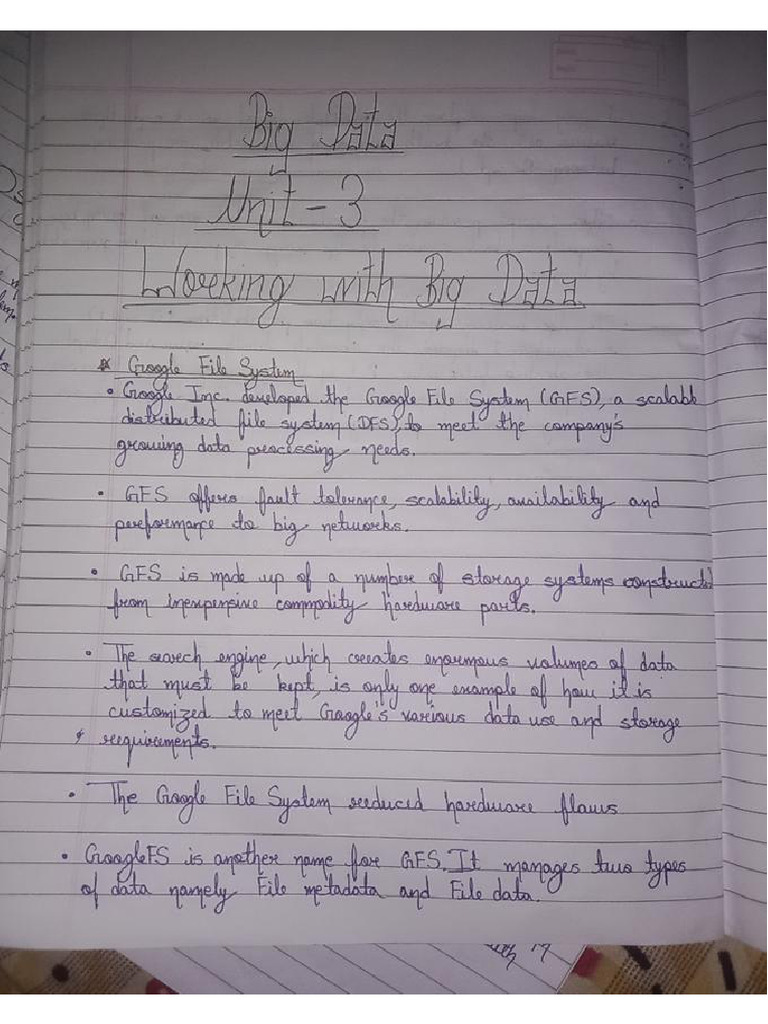 Big Data
Unit - 3
Working with Big Data
* Google File System
• Google Inc. developed the Google File System (GFS), a scalable
distributed file system (DFS), to meet the company's
growing data processing needs.
• GFS offers fault tolerance, scalability, availability and
performance to big networks.
• GFS is made up of a number of storage systems constructed
from inexpensive commodity hardware parts.
• The search engine, which creates enormous volumes of data
that must be kept, is only one example of how it is
customized to meet Google's various data use and storage
requirements.
• The Google File System reduced hardware flaws
• GoogleFS is another name for GFS. It manages two types
of data namely File metadata and File data.